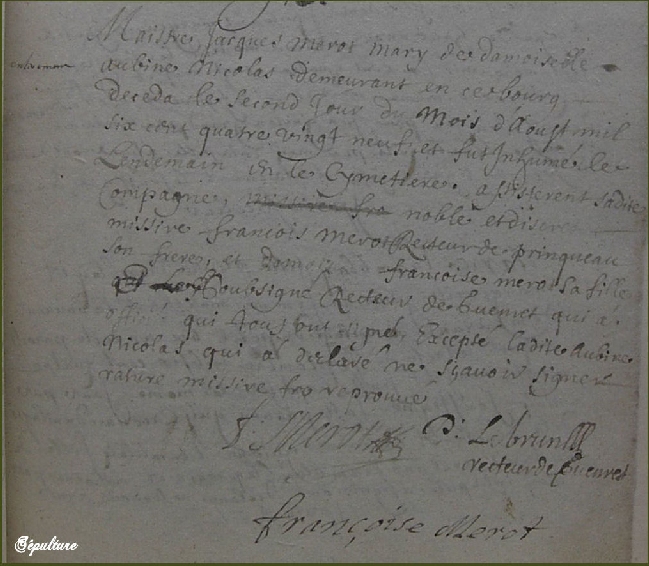 Maistre Jacques Merot mary de damoiselle
Aubine Nicolas demeurant en ce bourg
deceda le second Jour du Mois d'Aoust mil
six cent quatre vingt neuf, et fut Inhumé le
Lendemain en le Cymettiere, assisterent sadite
Compagne, missire fra noble et discret
missire francois merot Recteur de prinqueau
son frere, et damois francoise merot sa fille
Soubsigné Recteur de Guenret qui a
qui tous ont signé Excepté ladite Aubine
Nicolas qui a declaré ne Sçavoir signer
rature missire fra reprouvé
F: Merot
P: Lebrun
recteur de Guenret
françoise Merot
Sépulture